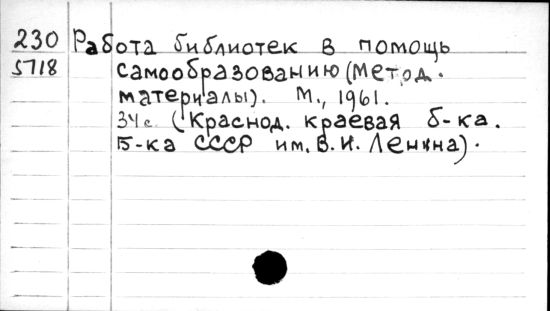 230 Работа библиотек в помощь
5718 самообразованию (Метод.
материалы). М., 1961.
34 с. (Краснод. краевая б-ка.
Б-ка СССР им. В. И. Ленина).